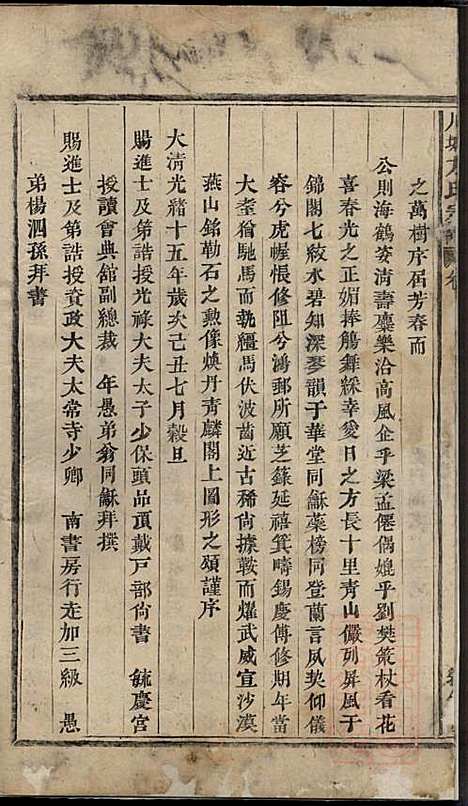 之萬樹序屆芳春而
公則海鶴姿清壽麋樂洽高風企乎梁孟僊偶媲乎劉樊策杖看花
喜春光之正媚捧觴舞綵幸愛日之方長十里靑山儼列屏風于
錦閣七絃水碧知深琴韻于華堂同龢藥榜同登蘭言夙契仰儀
容兮虎幄悵修阻兮鴻郵所願芝籙延禧箕疇錫慶傅修期年當
大耋猶馳馬而執韁馬伏波齒近古稀尙據鞍而燿武威宣沙漠
燕山銘勒石之勳像煥丹靑麟閣上圖形之頌謹序
大清光緖十五年歲次己丑七月穀旦
賜進士及第誥授光祿大夫太子少保頭品頂戴戸部尙書 毓慶宮
授讀會典館副總裁 年愚弟翁同龢拜撰
賜進士及第誥授資政大夫太常寺少卿 南書房行走加三級 愚
弟楊泗孫拜書